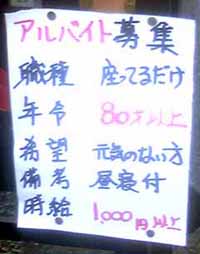 アルバイト募集
職種 座ってるだけ
年令 80才以上
希望 元気のない方
備考 昼寝付
時給 1,000円以上